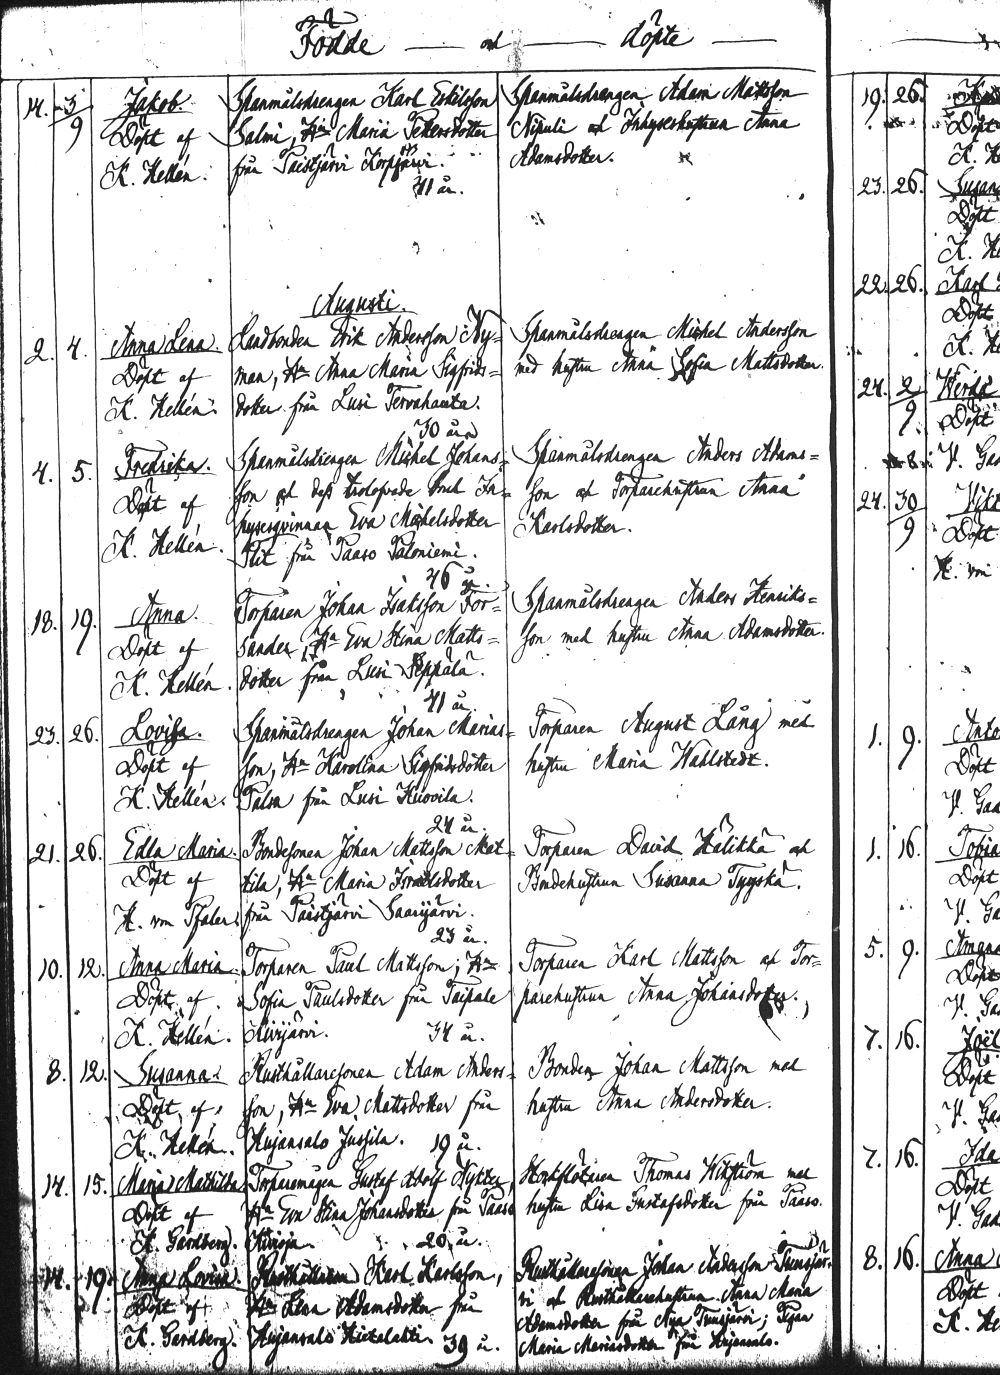 Födde — och — döpte —
14. 3/9 Jakob Spanmålsdrengen Karl Eskilsson Spanmålsdrengen Adam Mattsson
Döpt af Salmi, Hu Maria Petersdotter Nipuli och Inhyseshustrun Anna
K. Hellén. från Paistjärvi Korpijärvi. Adamsdotter.
41 år.
Augusti.
2. 4. Anna Lena. Landbonden Erik Andersson Ny= Spanmålsdrengen Michel Andersson
Döpt af man, Hu Anna Maria Sigfrids= med hustru Anna Sofia Mattsdotter.
K. Hellén. dotter från Lusi Tervahauta.
30 år
4. 5. Fredrika. Spanmålsdrengen Michel Johans= Spanmålsdrengen Anders Adams=
Döpt af son och dess trolofvade brud In= son och Torparehustrun Anna
hysesqvinnan Eva Michelsdotter Karlsdotter.
K. Hellén. Plit från Paaso Paloniemi.
46 år.
18. 19. Anna. Torparen Johan Isaksson For= Spanmålsdrengen Anders Henriks=
Döpt af sander, Hu Eva Stina Matts= son med hustru Anna Adamsdotter.
K. Hellén. dotter från Lusi Seppälä.
41 år.
23. 26. Lovisa. Spanmålsdrengen Johan Marias= Torparen August Lång med
Döpt af son, Hu Karolina Sigfridsdotter hustru Maria Wahlstedt.
K. Hellén. Palsa från Lusi Kuovila.
24 år.
21. 26. Edla Maria. Bondesonen Johan Mattsson Mat= Torparen David Hälikkä och
Döpt af tila, Hu Maria Israelsdotter Bondehustrun Susanna Tyyskä.
H. von Pfaler. från Paistjärvi Saarijärvi.
23 år.
10. 12. Anna Maria. Torparen Paul Mattsson, Hu Torparen Karl Mattsson och Tor=
Döpt af Sofia Paulsdotter från Taipale parehustrun Anna Johansdotter.
K. Hellén. Kivijärvi. 34 år.
8. 12. Susanna. Rusthållaresonen Adam Anders= Bonden Johan Mattsson med
Döpt af son, Hu Eva Mattsdotter från hustru Anna Andersdotter.
K. Hellén. Hujansalo Jussila. 19 år.
14. 15. Maria Mathilda Torparemågen Gustaf Adolf Nykter, Thomas Wikström med
Döpt af Hu Eva Stina Johansdotter från Paaso hustru Lisa Gustafsdotter från Paaso.
K. Gardberg. 20 år.
14. 19. Anna Lovisa Rusthållaren Karl Karlsson, Rusthållaresonen Johan Andersson Tuusjär=
Döpt af Hu Lena Adamsdotter från vi och Rusthållarehustrun Anna Maria
K. Gardberg. Hujansalo Hietalahti. 39 år. Adamsdotter från Nya Tuusjärvi; Pigan
Maria Mariasdotter från Hujansalo.
19. 26.
Döpt
K. He
23. 26. Susan
Döpt
K. He
22. 26. Karl
Döpt
K. He
24. 2/9 Werda
Döpt
V. Gad
24. 30/9 Vikt
Döpt
H. von
1. 9. Anto
Döpt
V. Gad
1. 16. Tobia
Döpt
V. Ga
5. 9. Amana
Döpt
V. Ga
7. 16. Joël
Döpt
V. Gad
7. 16. Ida
Döpt
V. Gad
8. 16. Anna
Döpt
K. He